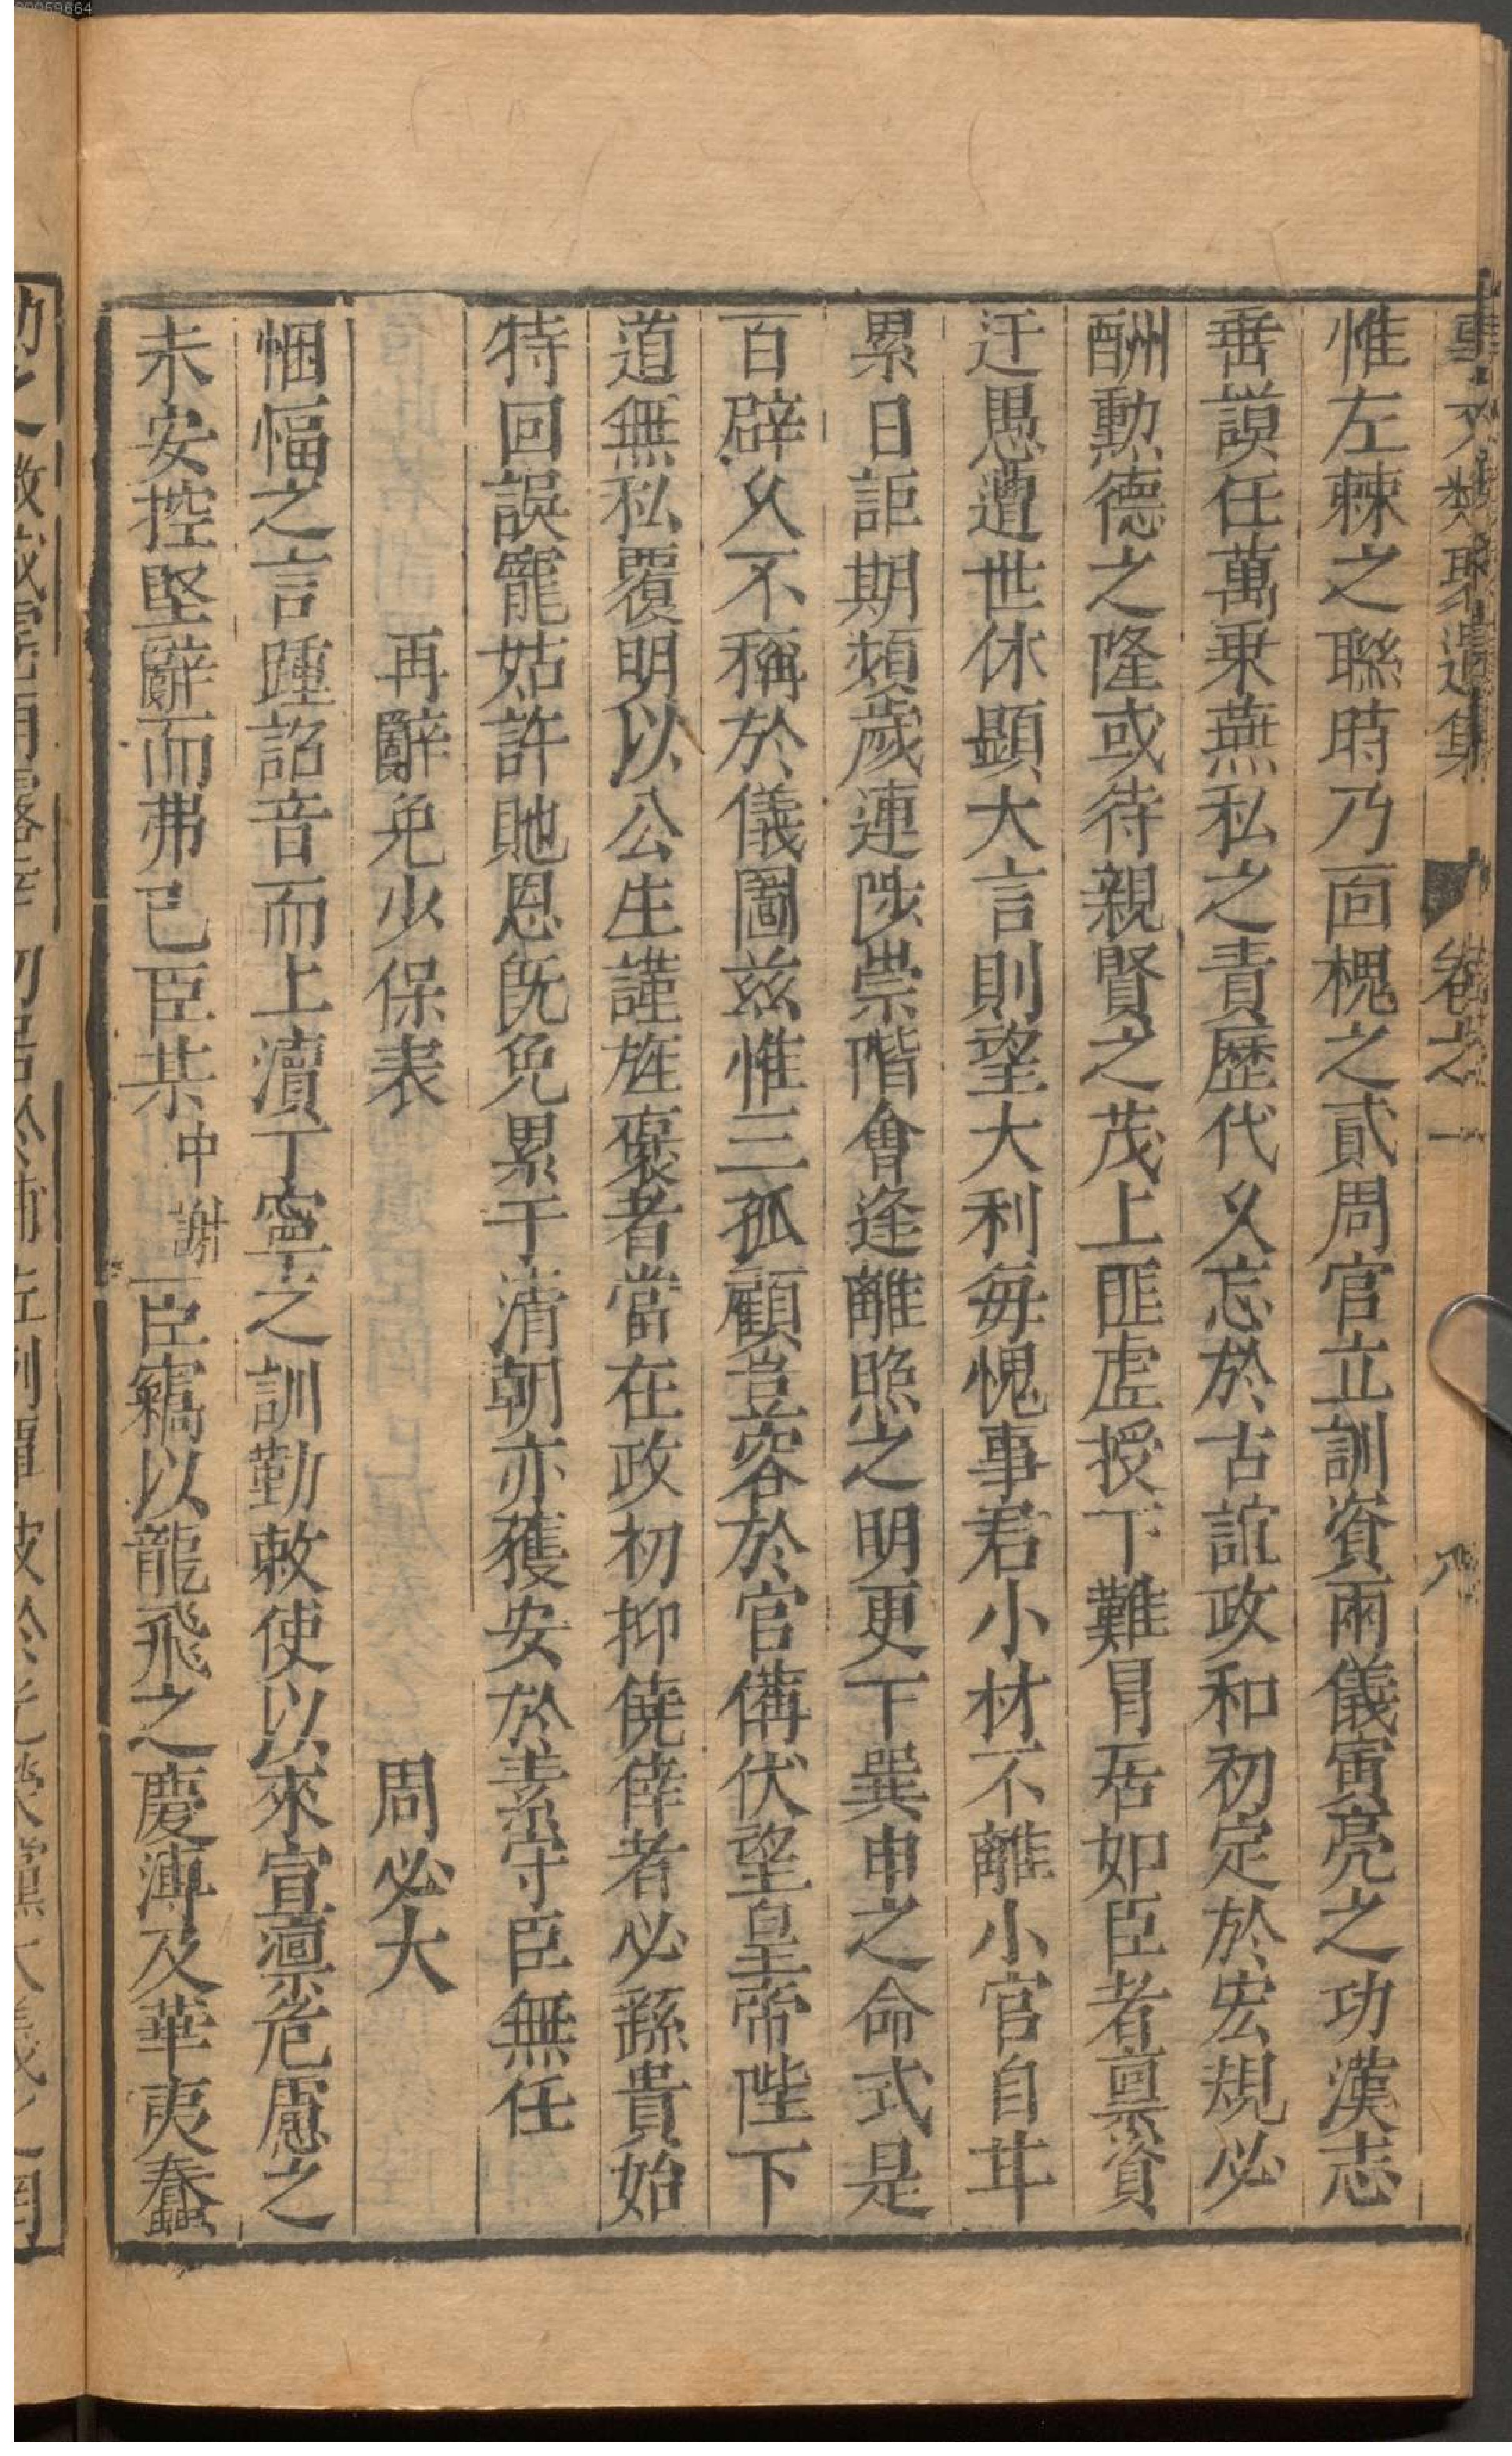 事文類聚遺集 卷之一 八
惟左棘之聯時乃面槐之貳周官立訓資兩儀寅亮之功漢志
垂謨任萬乗燕私之責歴代乆忘於古誼政和初定於宏規必
酬勲德之隆或待親賢之茂上匪虛授下難冒居如臣者禀資
迂愚遭世休顯大言則望大利毎愧事君小材不離小官自甘
累日詎期頻歲連陟崇階會逢離照之明更下巽申之命式是
百辟乆不稱於儀圖兹惟三孤顧豈容於官備伏望皇帝陛下
道無私覆明以公生謹旌褒者當在政初抑僥倖者必繇貴始
特回誤寵姑許貤恩旣免累于清朝亦獲安於素守臣無任
再辭免少保表 周必大
悃愊之言踵詔音而上瀆丁寧之訓勤敕使以來宣凛危慮之
未安控堅辭而弗已臣某中謝臣竊以龍飛之慶溥及華夷蠢